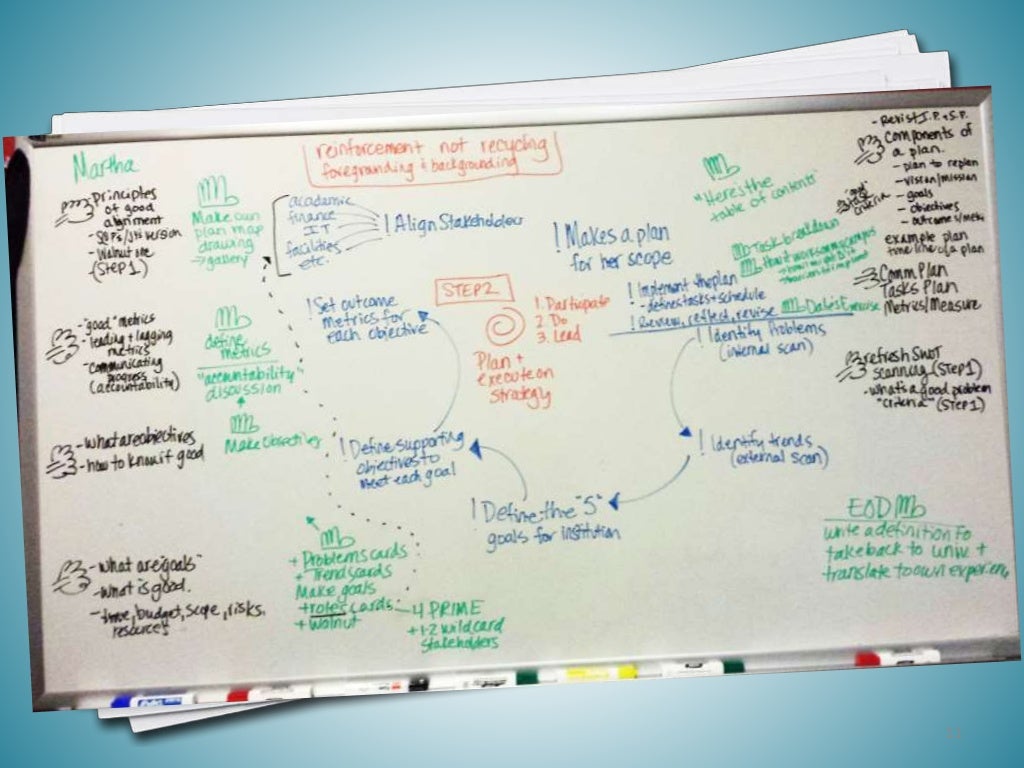 Martha
reinforcement not recycling
foregrounding & backgrounding
Principles
of good
alignment
- Walnut
(STEP 1)
Make own
plan map
drawing
→ gallery
academic
finance
IT
facilities
etc.
! Align Stakeholders
! Makes a plan
for her scope
"Here's the
table of contents"
- Revisit I.P. + S.P.
Components of
a plan.
- plan to replan
- vision/mission
- goals
- objectives
- outcomes/
example plan
timeline of a plan
criteria
Task breakdown
! Implement the plan
- defines tasks + schedule
! Review, reflect, revise
Exercise
Comm Plan
Tasks Plan
Metrics/Measure
STEP 2
1. Participate
2. Do
3. Lead
Plan +
execute on
strategy
! Set outcome
metrics for
each objective
- "good" metrics
leading + lagging
metrics
- communicating
progress
(accountability)
define
metrics
"accountability"
discussion
Make Objectives
! Identify Problems
(internal scan)
refresh SWOT
scanning (STEP 1)
- what's a good problem
"criteria" (STEP 1)
- what are objectives
- how to know if good
! Define supporting
objectives to
meet each goal
! Identify trends
(external scan)
! Define the "5"
goals for institution
EOD
write a definition to
take back to univ +
translate to own experien
- what are "goals"
- what is good.
- time, budget, scope, risks,
resources
+ Problems cards
+ Trends cards
Make goals
+ roles cards
+ walnut
4 PRIME
+ 1-2 wildcard
stakeholders